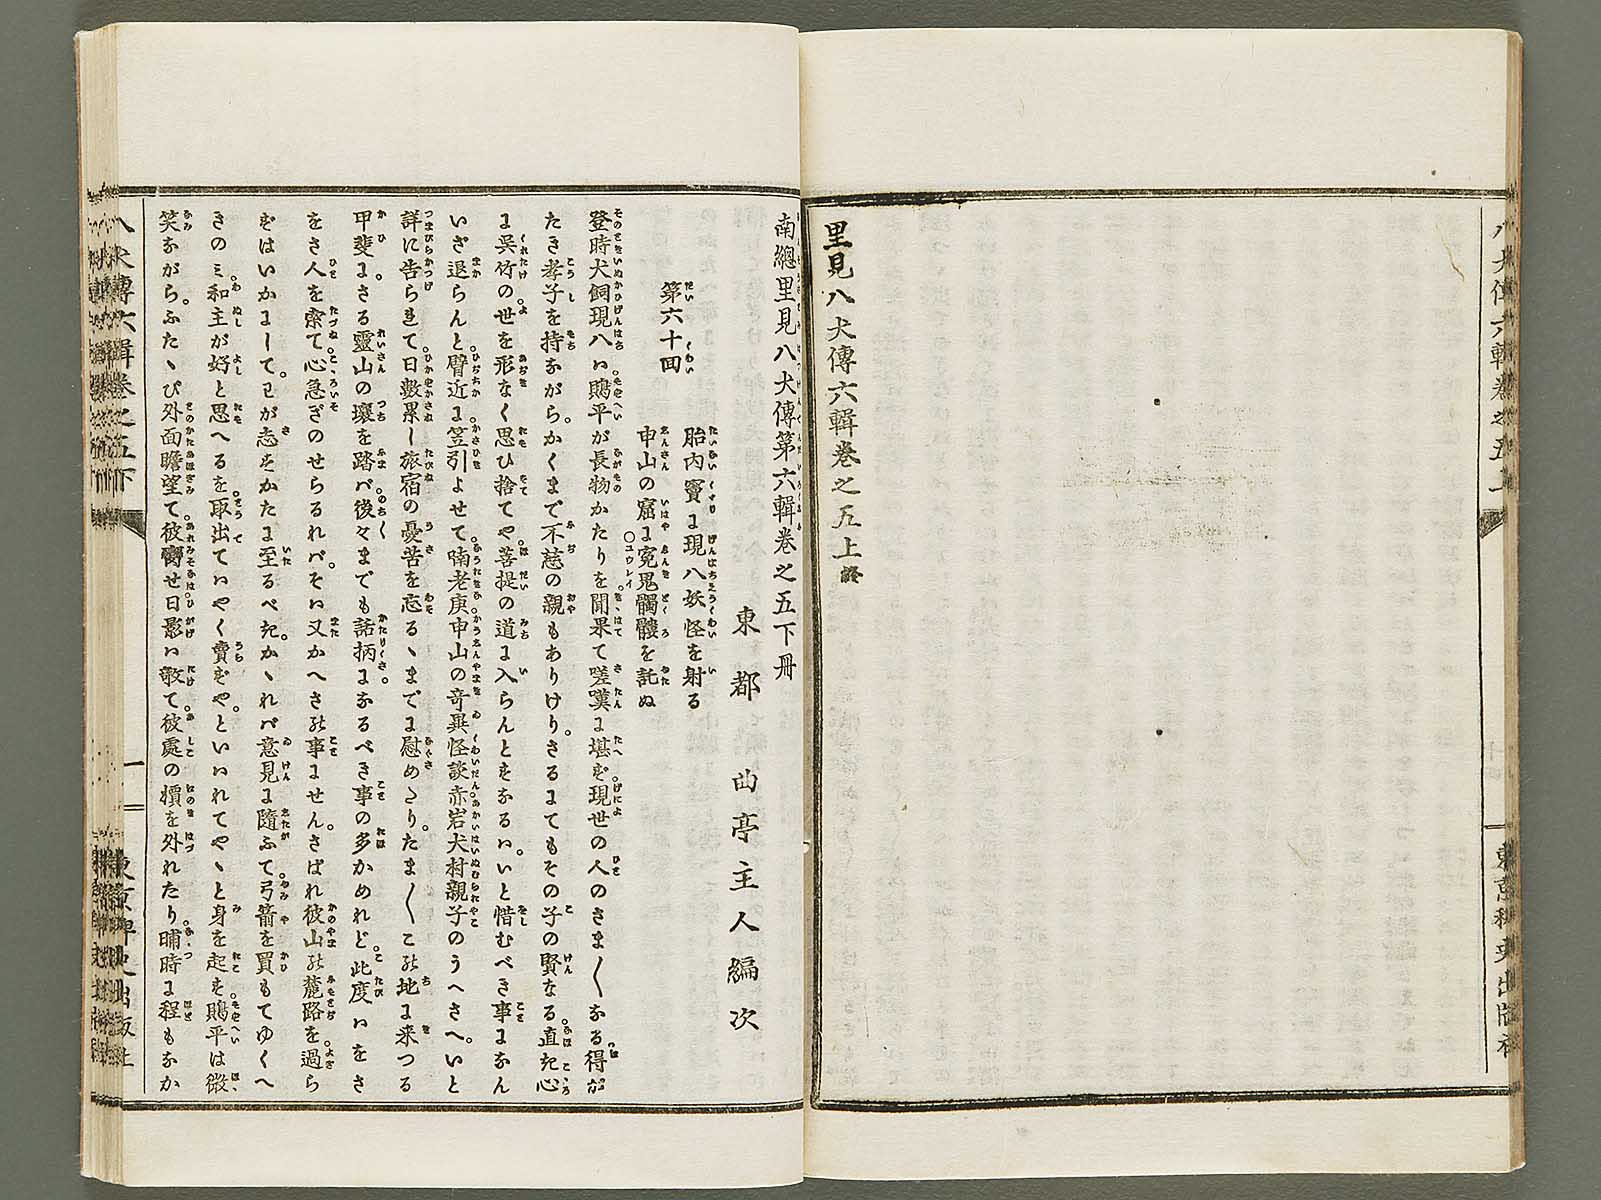 里見八犬傳六輯卷之五上終
南總里見八犬傳第六輯卷之五下冊
東都 曲亭主人編次
第六十回
胎内竇に現八妖怪を射る
申山の窟に寃鬼髑髏を託ぬ
登時犬飼現八ハ鵙平が長物かたりを聞果て嗟嘆に堪ず現世の人のさま〱なる得がた
たき孝子を持ながらかくまで不慈の親もありけりさるにてもその子の賢なる直き心
に呉竹の世を形なく思ひ捨てや菩提の道に入らんとするハいと惜むべき事になん
いざ退らんと臂近に笠引よせて喃老庚申山の奇異怪談赤岩犬村親子のうへさへいと
詳に告られて日數累し旅宿の憂苦を忘るゝまでに慰めたりたま〱この地に来つる
甲斐にさる靈山の壤を踏バ後々までも話柄になるべき事の多かめれど此度ハをさ
をさ人を索て心急ぎのせらるれバそハ又かへさの事にせんさばれ彼山の麓路を過ら
ずはいかにしてわが志すかたに至るべきかゝれバ意見に隨ふて弓箭を買もてゆくへ
きのミ和主が好と思へるを取出てハやく賣ずやといハれてやゝと身を起す鵙平は微
笑ながらふたゝび外面瞻望て彼寄せ日影ハ敧て彼處の檟を外れたり晡時に程もなか
八犬傳六輯卷之五下
一
東京稗史出版社
八犬傳六輯卷之五上
東京稗史出版社